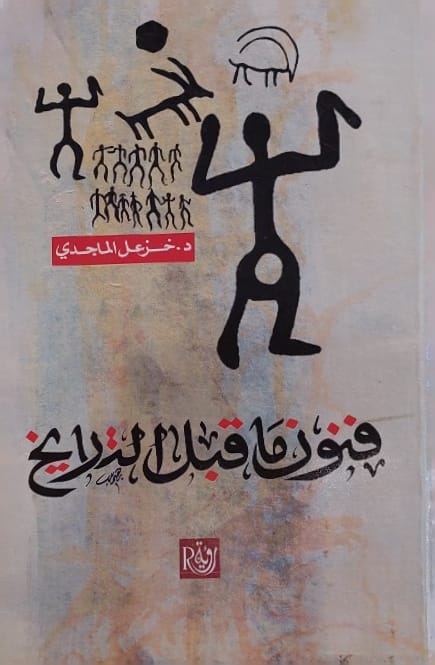 د. خزعل الماجدي
فنون ما قبل التاريخ
رؤية
R